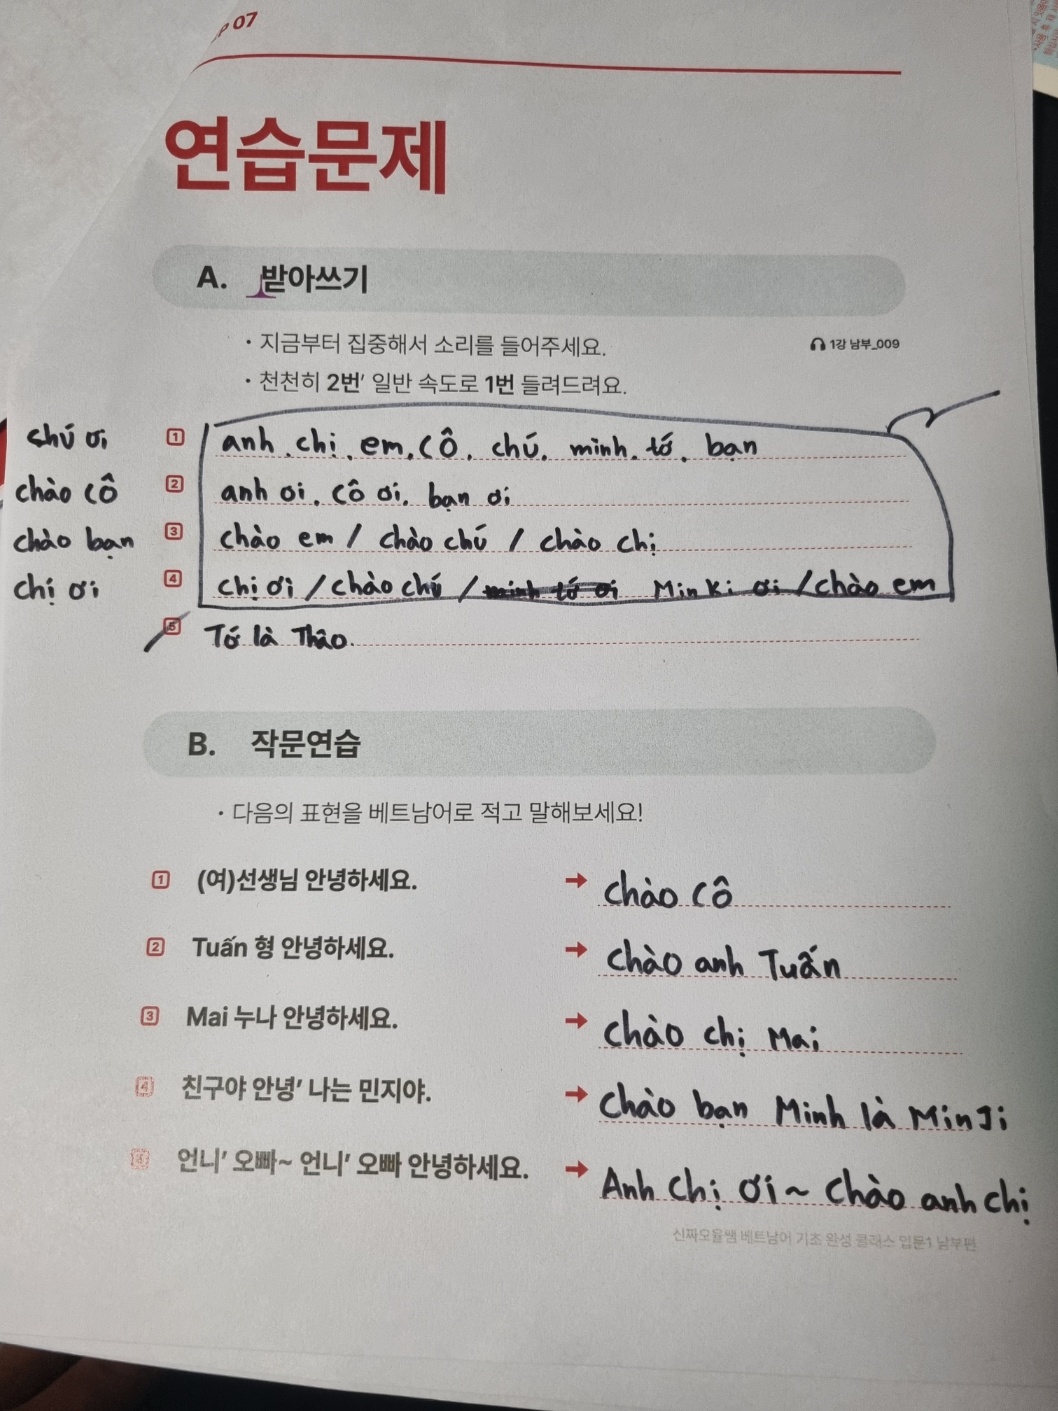 07
연습문제
A. 받아쓰기
• 지금부터 집중해서 소리를 들어주세요.
1강 남부_009
• 천천히 2번’ 일반 속도로 1번 들려드려요.
chú ơi
1 anh, chị, em, Cô, chú, mình, tớ, bạn
chào Cô
2 anh ơi, Cô ơi, bạn ơi
chào bạn
3 chào em / chào chú / chào chị
chị ơi
4 chị ơi / chào chú / mình tớ ơi Min Ki ơi / chào em
5 Tớ là Thảo.
B. 작문연습
• 다음의 표현을 베트남어로 적고 말해보세요!
1 (여)선생님 안녕하세요. → Chào Cô
2 Tuấn 형 안녕하세요. → Chào anh Tuấn
3 Mai 누나 안녕하세요. → Chào chị Mai
4 친구야 안녕’ 나는 민지야. → Chào bạn Minh là MinJi
언니’ 오빠~ 언니’ 오빠 안녕하세요. → Anh Chị ơi ~ Chào anh chị
신짜오율쌤 베트남어 기초 완성 클래스 입문1 남부편